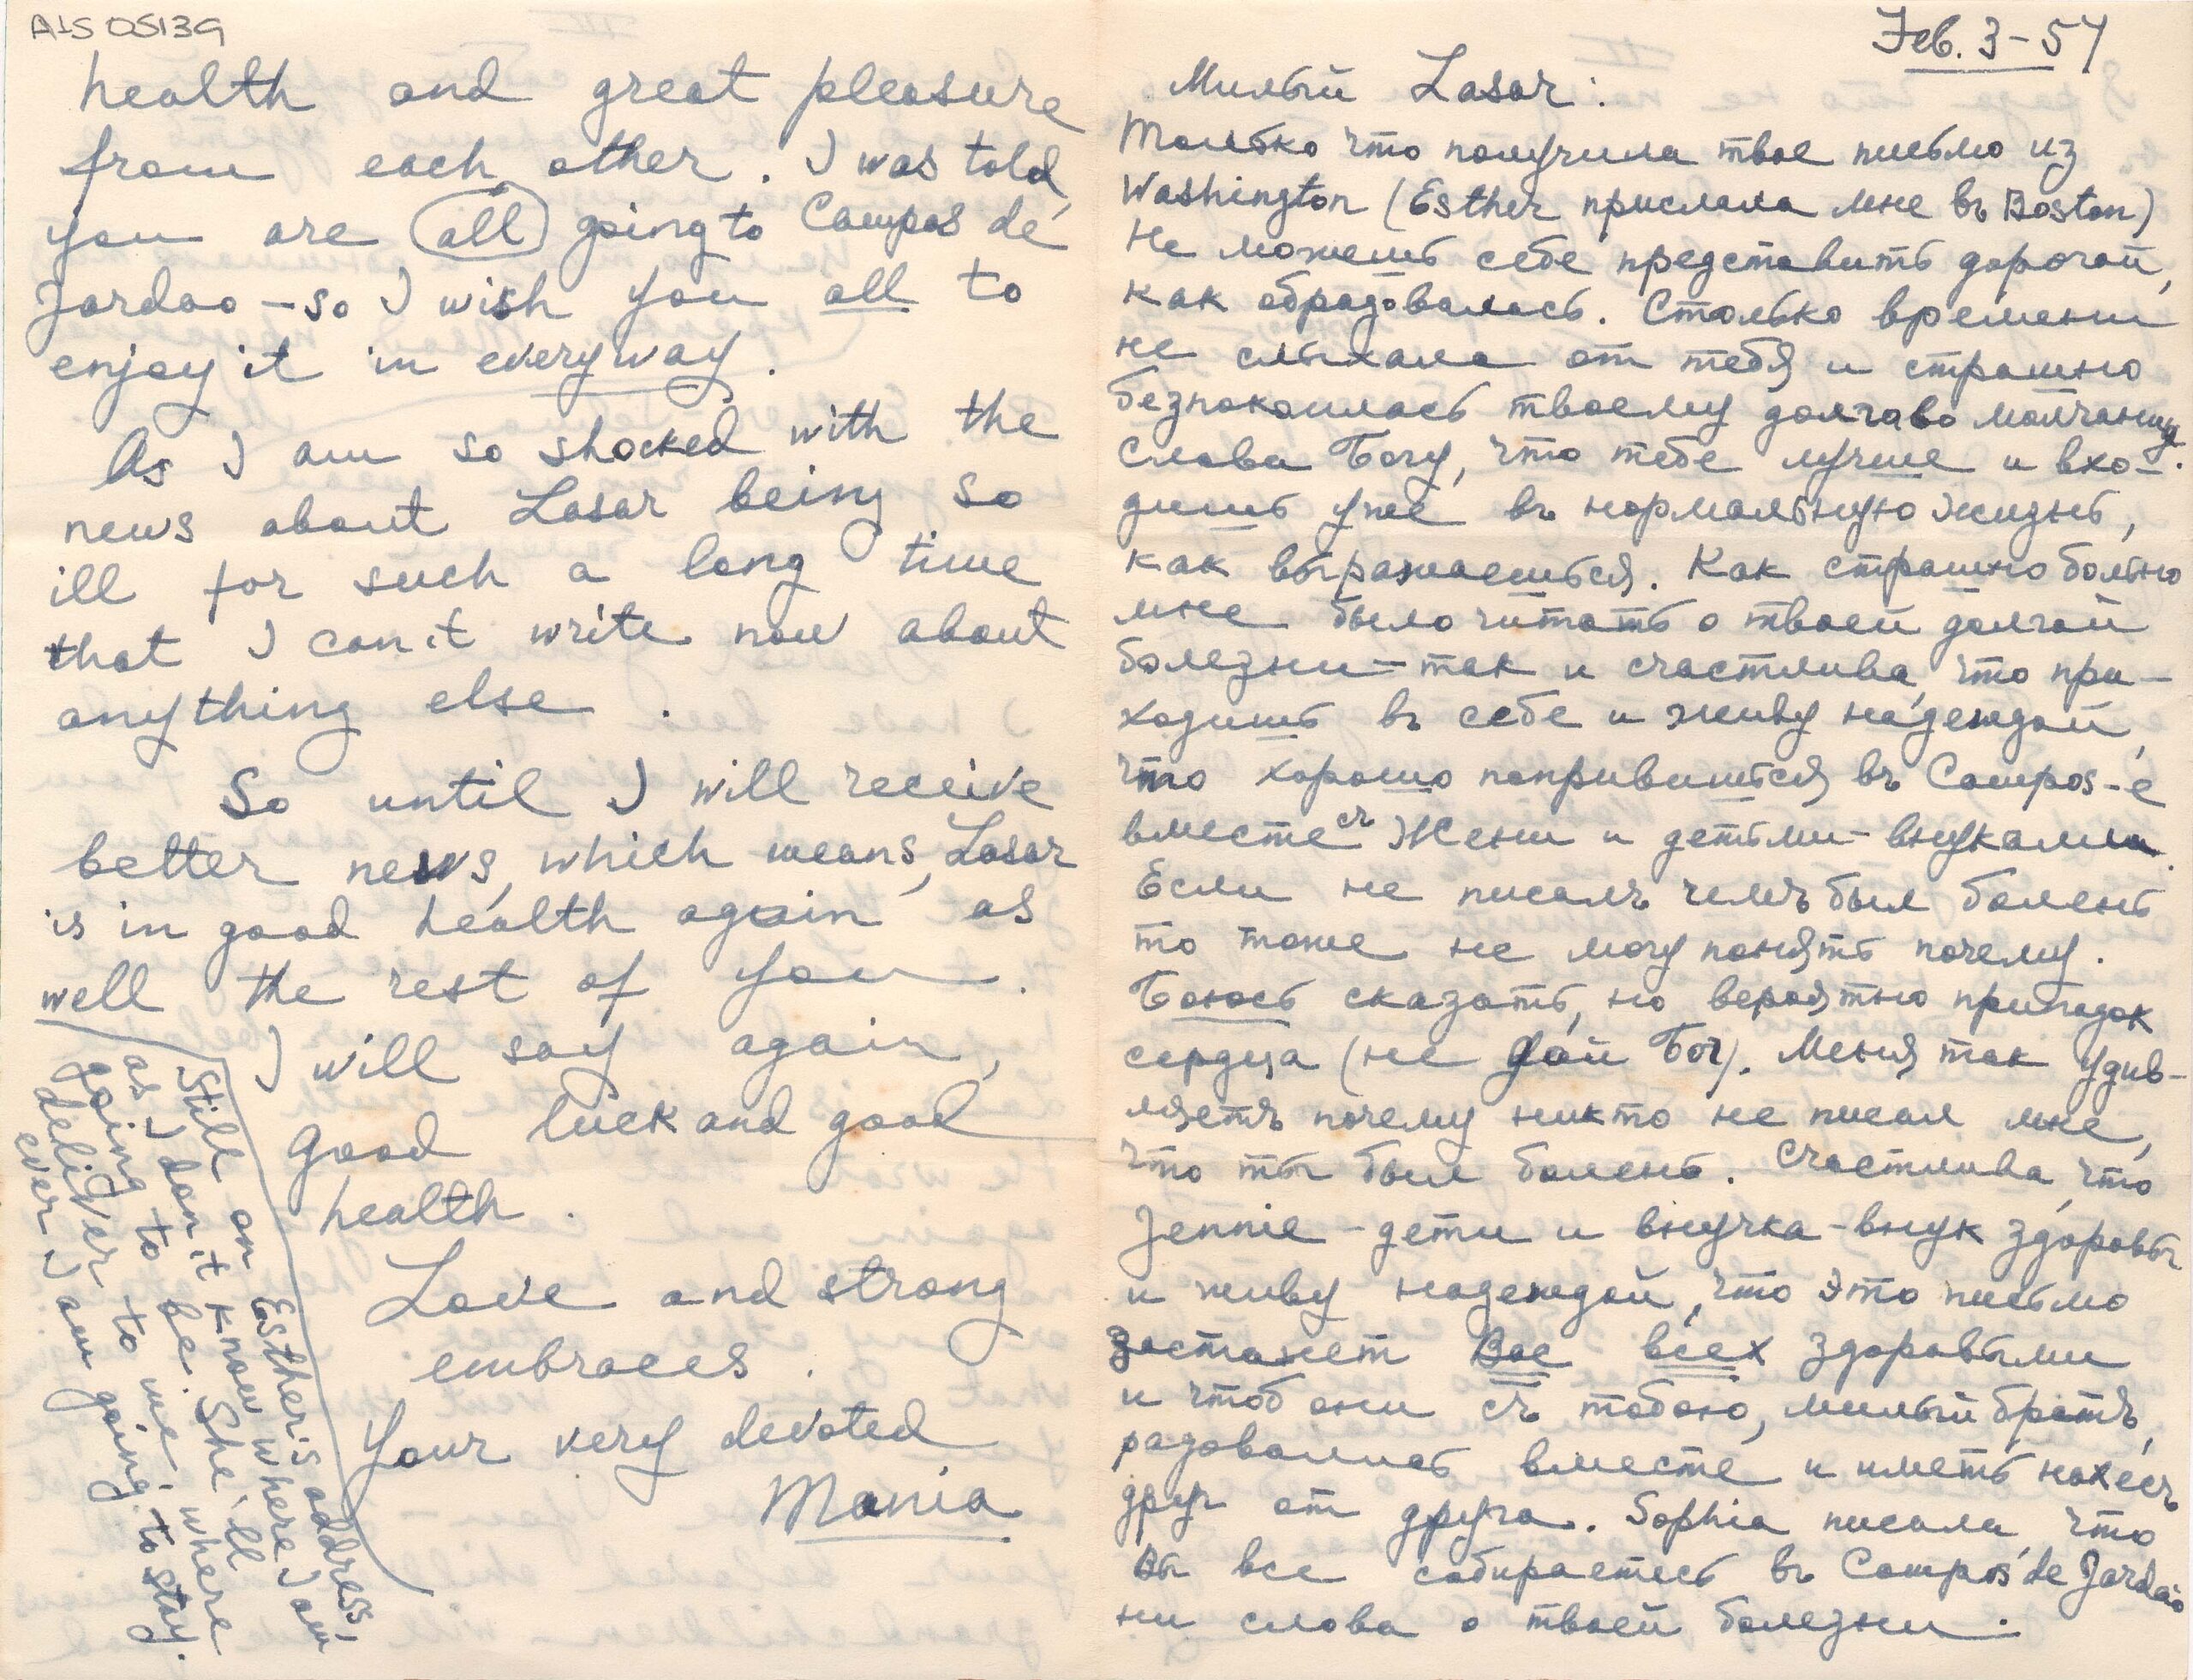 ALS 05139
health and great pleasure
from each other. I was told,
you are all going to Campos de
Jordao - so I wish you all to
enjoy it in everyway.
As I am so shocked with the
news about Lasar being so
ill for such a long time
that I can't write now about
anything else.
So until I will receive
better news, which means, Lasar
is in good health again as
well the rest of you.
I will say again,
good luck and good
health.
Love and strong
embraces.
Your very devoted
Mania
Still on Esther's address,
as I don't know where I am
going to be. She'll
deliver to me where
ever I am going to stay.
Feb. 3 - 57
Милый Lasar:
Только что получила твое письмо из
Washington (Esther прислала мне въ Boston)
Не можешь себе представить дорогой,
как обрадовалась. Столько времени
не слыхала от тебя и страшно
безпокоилась твоему долгаво молчанию.
Слава Богу, что тебе лучше и вхо-
дишь уже въ нормальную жизнь,
как выражаешься. Как страшно больно
мне было читать о твоей долгой
болезни - так и счастлива, что при-
ходишь въ себе и живу надеждой,
что хорошо поправишься въ Campos-е
вместе съ Жени и детьми - внуками.
Если не писалъ чемъ был болень
то тоже не могу понять почему.
Боюсь сказать, но вероятно припадок
сердца (не дай Бог). Меня так удив-
ляетъ почему никто не писал мне,
что ты был болень. Счастлива, что
Jennie - дети и внучка - внук здоровы
и живу надеждой, что это письмо
застанет Вас всех здоровыми
и чтоб они съ тобою, милый братъ,
радовались вместе и иметь нахесъ
друг от друга. Sophia писала, что
Вы все собираетесь въ Campos de Jordão
ни слова о твоей болезни.